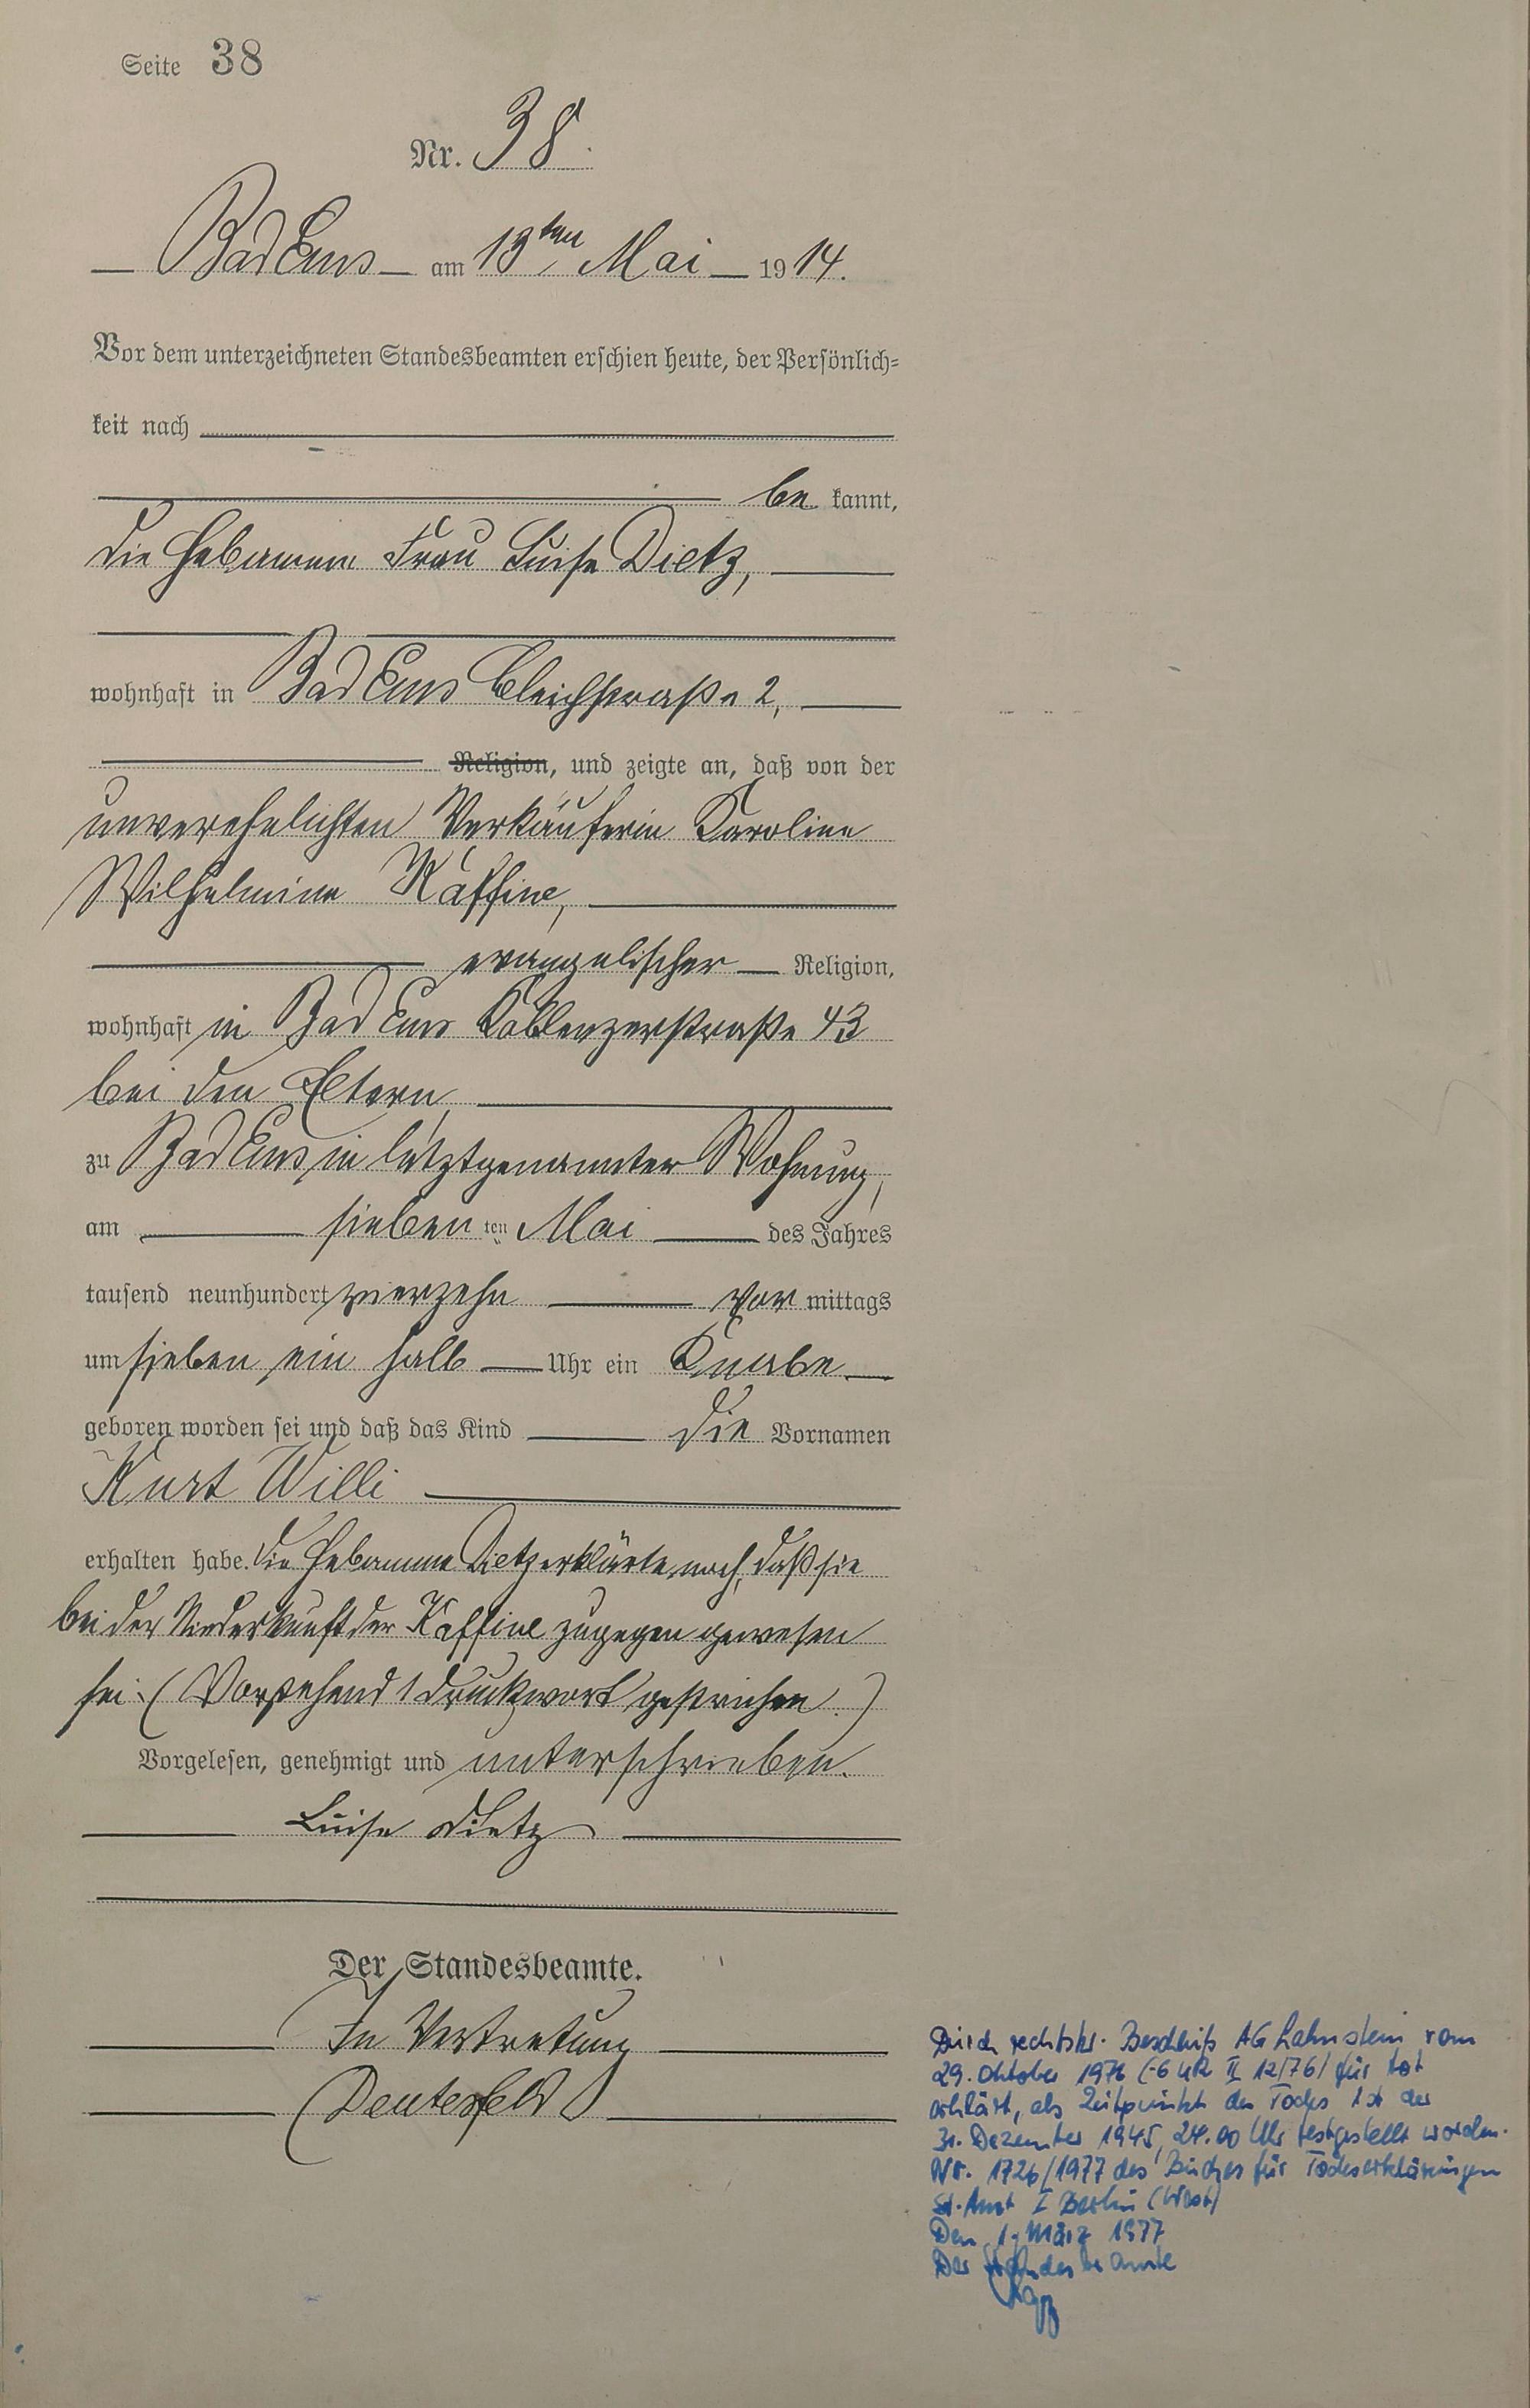 Seite 38
Nr. 38.
Bad Ems am 13ten Mai 1914.
Vor dem unterzeichneten Standesbeamten erschien heute, der Persönlich=
keit nach
be kannt,
die Hebamme Frau Luise Dietz,
wohnhaft in Bad Ems Bleichstraße 2,
Religion, und zeigte an, daß von der
unverehelichten Verkäuferin Karoline
Wilhelmine Kaffine,
evangelischer Religion,
wohnhaft in Bad Ems Koblenzerstraße 43
bei den Eltern
zu Bad Ems in letztgenannter Wohnung,
am sieben ten Mai des Jahres
tausend neunhundert vierzehn vor mittags
um sieben ein halb Uhr ein Knabe
geboren worden sei und daß das Kind die Vornamen
Kurt Willi
erhalten habe. Die Hebamme Dietz erklärte noch, daß sie
bei der Niederkunft der Kaffine zugegen gewesen
sei. (Vorstehend 1 Druckwort gestrichen.)
Vorgelesen, genehmigt und unterschrieben.
Luise Dietz
Der Standesbeamte.
In Vertretung
Deuterfeld
Durch rechtskr. Beschluß AG Lahnstein vom
29. Oktober 1976 (-6 UR II 12/76) für tot
erklärt, als Zeitpunkt des Todes ist der
31. Dezember 1945, 24.00 Uhr festgestellt worden.
Nr. 1726/1977 des Buches für Todeserklärungen
St. Amt I Berlin (West)
Den 1. März 1977
Der Standesbeamte